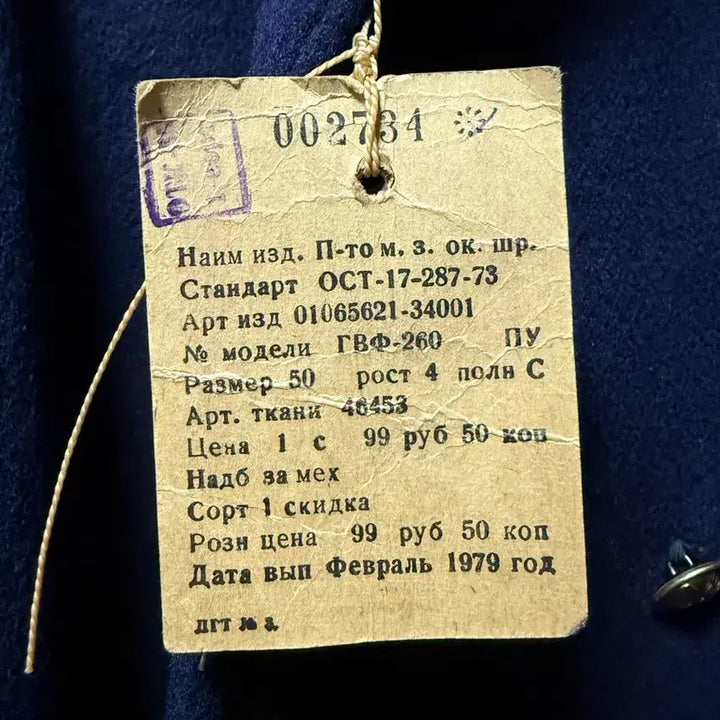 002734
Наим изд. П-то м. з. ок. шр.
Стандарт ОСТ-17-287-73
Арт изд 01065621-34001
№ модели ГВФ-260 ПУ
Размер 50 рост 4 полн С
Арт. ткани 46453
Цена 1 с 99 руб 50 коп
Надб за мех
Сорт 1 скидка
Розн цена 99 руб 50 коп
Дата вып Февраль 1979 год